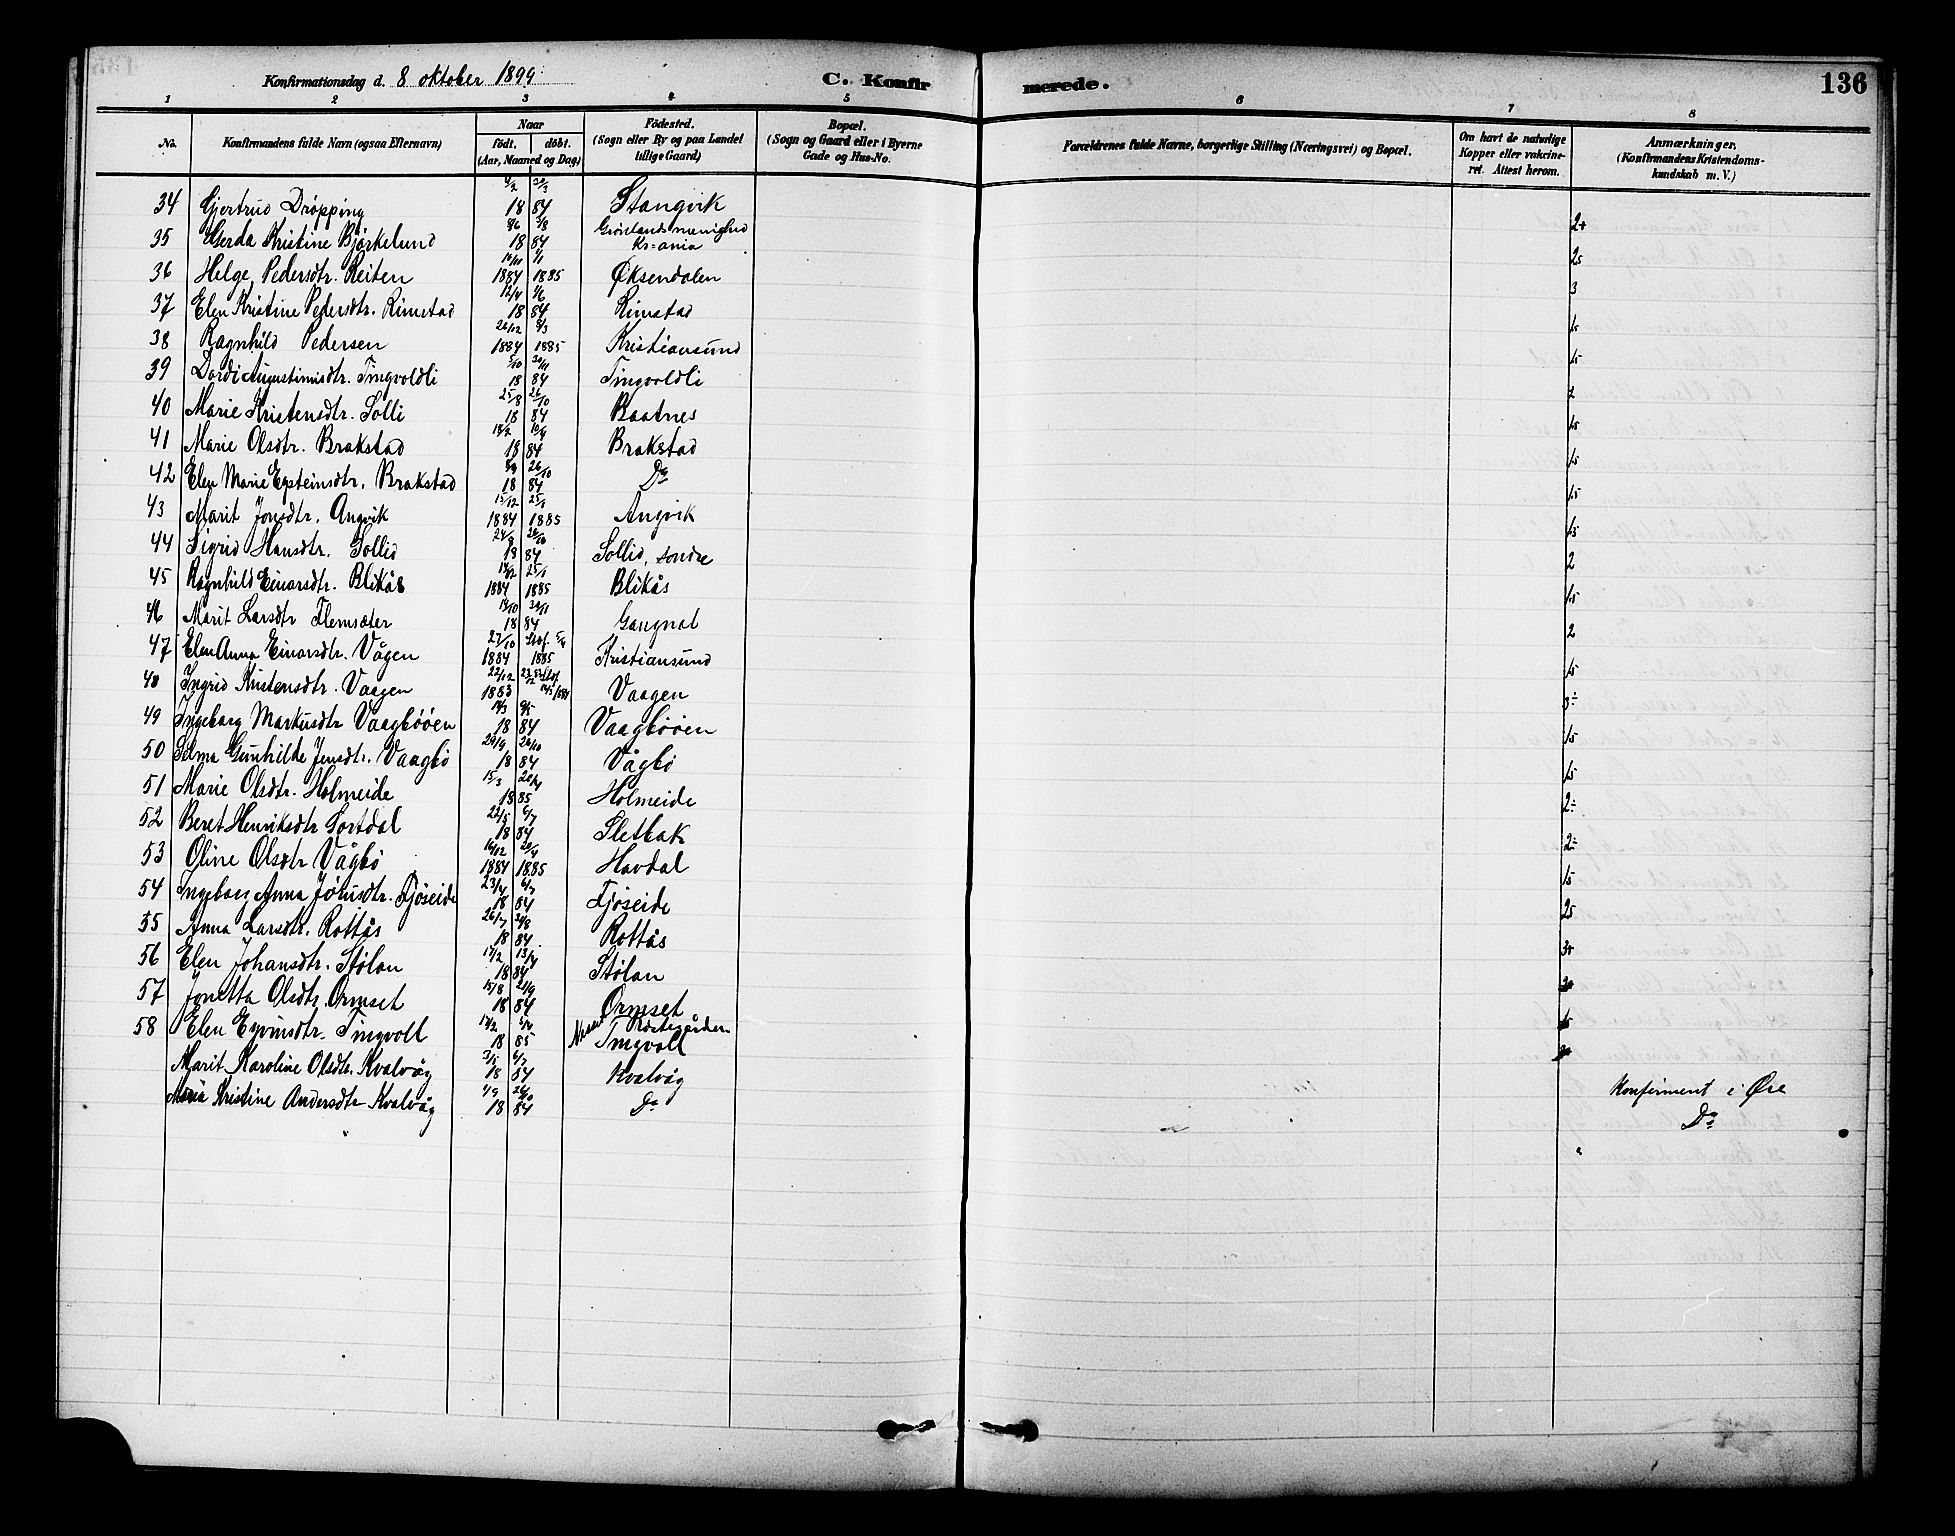 Konfirmationsdag d. 8 oktober 1899. C. Konfirmerede. 136
1 2 3 4 5 6 7 8
No. Konfirmandens fulde Navn (ogsaa Efternavn) Naar Födt. döbt. (Aar, Maaned og Dag) Födested. (Sogn eller By og paa Landet tillige Gaard) Bopæl. (Sogn og Gaard eller i Byerne Gade og Hus-No. Forældrenes fulde Navne, borgerlige Stilling (Næringsvei) og Bopæl. Om havt de naturlige Kopper eller vakcineret. Attest herom. Anmærkninger. (Konfirmandens Kristendomskundskab m. V.)
34 Gjertrud Dröpping 18 84 Stangvik 2+
35 Gerda Kristine Björkelund 18 84 Grönlands menighed Kr=ania 25
36 Helge Pedersdtr. Reiten 1884 1885 Øksendalen 3
37 Elen Kristine Pedersdtr. Rimstad 12/4 18 84 Rimstad 15
38 Ragnhild Pedersen 26/12 1884 1885 Kristiansund 15
39 Dordi Augustinusdtr. Tingvoldli 5/10 30/11 18 84 Tingvoldli 2
40 Marie Kristensdtr. Solli 25/8 26/10 18 84 Baatnes 15
41 Marie Olsdtr. Brakstad 18 84 Brakstad 15
42 Elen Marie Eysteinsdtr. Brakstad 26/10 18 84 Do 15
43 Marit Jonsdtr. Angvik 15/12 25/1 1884 1885 Angvik 15
44 Sigrid Hansdtr. Sollid 24/8 26/10 18 84 Sollid, söndre 2
45 Ragnhild Einarsdtr. Blikås 25/1 1884 1885 Blikås 15
46 Marit Larsdtr Flemsæter 30/11 18 84 Gangnat 2
47 Elen Anna Einarsdtr. Vågen 27/10 1884 1885 Kristiansund 15
48 Ingrid Kristensdtr. Vaagen 22/12 1883 Vaagen 3÷
49 Ingeborg Markusdtr Vaagböen 18 84 Vaagbøen 15
50 Selma Gunhilde Jensdtr. Vaagbö 29/9 26/10 18 84 Vågbö 15
51 Marie Olsdtr. Holmeide 15/3 18 85 Holmeide 2÷
52 Beret Henriksdtr Sortdal 6/7 18 84 Sletbak 2÷
53 Oline Olsdtr Vågbö 1884 1885 Havdal 15
54 Ingeborg Anna Johnsdtr. Fjöseide 23/4 6/7 18 84 Fjöseide 25
55 Anna Larsdtr. Rottås 26/7 18 84 Rottås 35
56 Elen Johansdtr. Stölan 17/2 13/4 18 84 Stölan
57 Jonetta Olsdtr. Ormset 15/8 21/9 18 84 Ormset
58 Elen Eyvinsdtr. Tingvoll 18 85 Tingvoll
Marit Karoline Olsdtr. Kvalvåg 3/5 6/7 18 84 Kvalvåg Konfirment i Øre
Maria Kristine Andersdtr Kvalvåg 18 84 Do Do